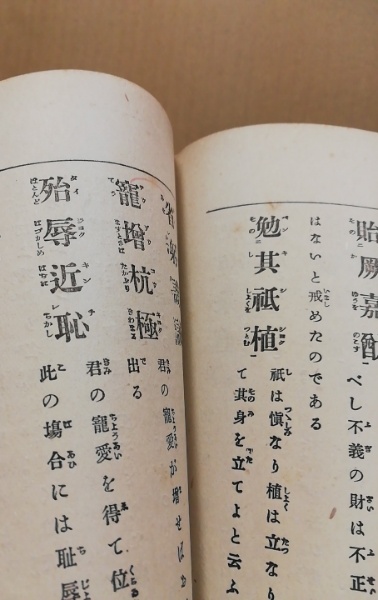 貽厥嘉猷
べし不義の財は不正
はないと戒めたのである
勉其祇植
祇は愼なり植は立なり
て其身を立てよと云ふ
君の寵愛が增せば
寵增杭極
出る
君の寵愛を得て位
殆辱近恥
此の塲合には耻辱